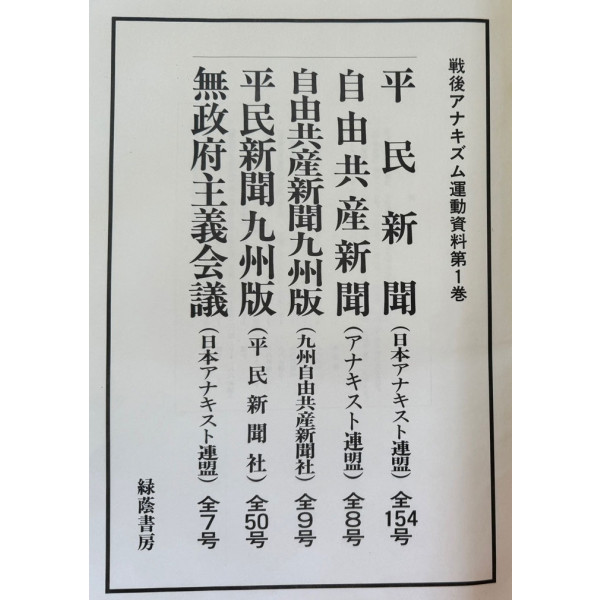 戦後アナキズム運動資料第1巻
平民新聞(日本アナキスト連盟)全154号
自由共産新聞(アナキスト連盟)全8号
自由共産新聞九州版(九州自由共産新聞社)全9号
平民新聞九州版(平民新聞社)全50号
無政府主義会議(日本アナキスト連盟)全7号
緑蔭書房